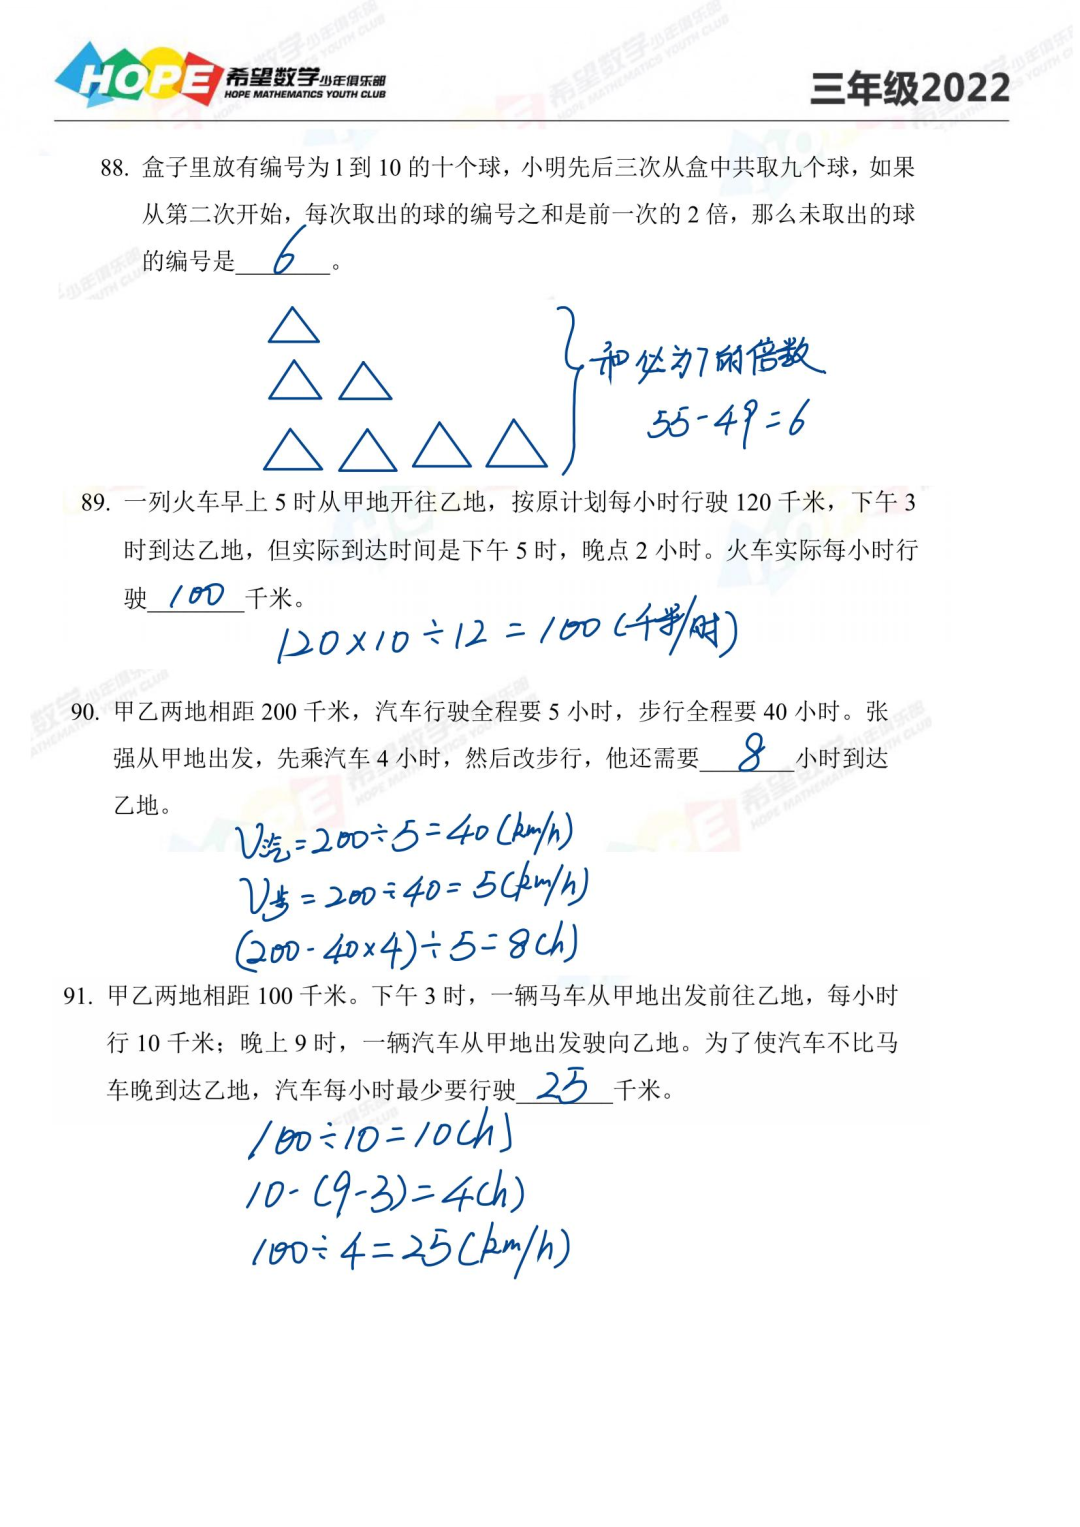 HOPE 希望数学少年俱乐部
HOPE MATHEMATICS YOUTH CLUB
三年级2022
88. 盒子里放有编号为1到 10 的十个球，小明先后三次从盒中共取九个球，如果
从第二次开始，每次取出的球的编号之和是前一次的 2 倍，那么未取出的球
的编号是 6 。
和必为7的倍数
55-49=6
89. 一列火车早上 5 时从甲地开往乙地，按原计划每小时行驶 120 千米，下午 3
时到达乙地，但实际到达时间是下午 5 时，晚点 2 小时。火车实际每小时行
驶 100 千米。
120×10÷12=100(千米/时)
90. 甲乙两地相距 200 千米，汽车行驶全程要 5 小时，步行全程要 40 小时。张
强从甲地出发，先乘汽车 4 小时，然后改步行，他还需要 8 小时到达
乙地。
V汽=200÷5=40(km/h)
V步=200÷40=5(km/h)
(200-40×4)÷5=8(h)
91. 甲乙两地相距 100 千米。下午 3 时，一辆马车从甲地出发前往乙地，每小时
行 10 千米；晚上 9 时，一辆汽车从甲地出发驶向乙地。为了使汽车不比马
车晚到达乙地，汽车每小时最少要行驶 25 千米。
100÷10=10(h)
10-(9-3)=4(h)
100÷4=25(km/h)